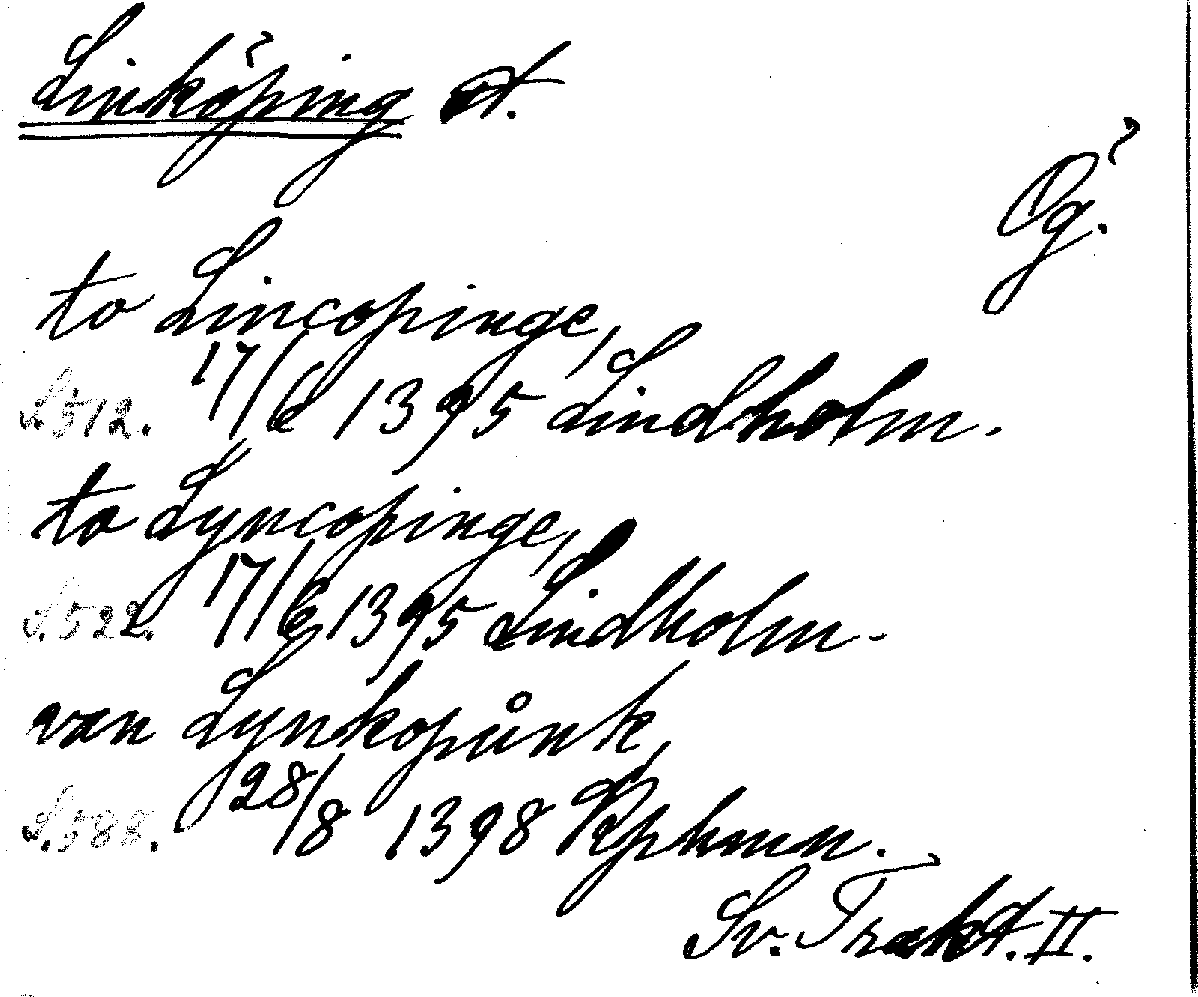 Linköping st.
Ög.
to Lincopinge,
S. 512. 17/6 1395 Lindholm.
to Lyncopinge,
S. 522. 17/6 1395 Lindholm.
van Lynkopůnk,
S. 582. 28/8 1398 Kphmn.
Sv. Trakt. II.